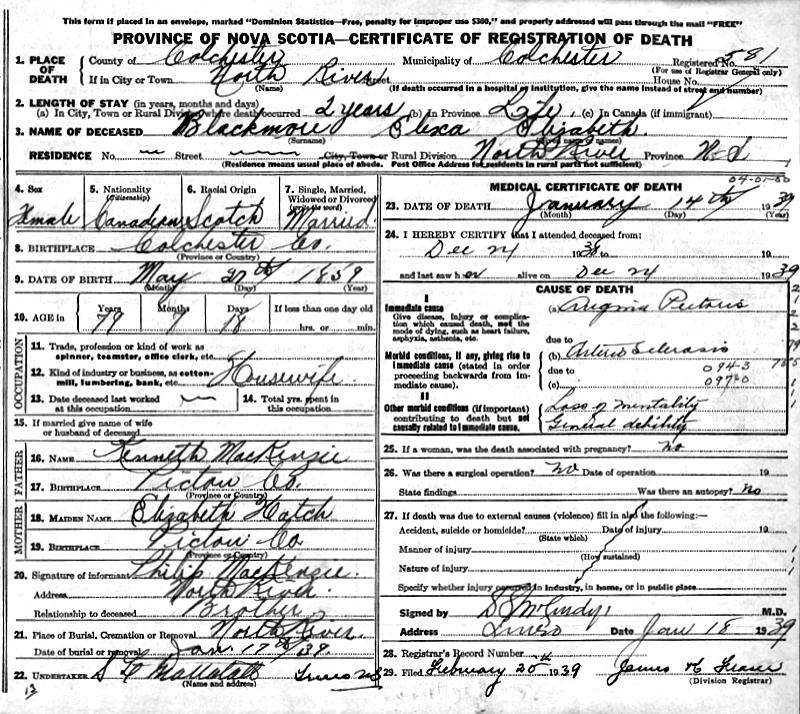 This form if placed in an envelope, marked "Dominion Statistics—Free, penalty for improper use $300," and properly addressed will pass through the mail "FREE"
PROVINCE OF NOVA SCOTIA—CERTIFICATE OF REGISTRATION OF DEATH
1. PLACE OF DEATH County of Colchester Municipality of Colchester Registered No. 581
(For use of Registrar General only)
If in City or Town North River Street House No.
(Name) (If death occurred in a hospital or institution, give the name instead of street and number)
2. LENGTH OF STAY (in years, months and days)
(a) In City, Town or Rural Division where death occurred 2 years (b) In Province Life (c) In Canada (if immigrant)
3. NAME OF DECEASED Blackmore Elexa Elizabeth.
(Surname)
RESIDENCE No. — Street — City, Town or Rural Division North River Province N.S.
(Residence means usual place of abode. Post Office Address for residents in rural parts not sufficient)
4. Sex 5. Nationality (Citizenship) 6. Racial Origin 7. Single, Married, Widowed or Divorced (write the word)
Female Canadian Scotch Married
8. BIRTHPLACE Colchester Co.
(Province or Country)
9. DATE OF BIRTH May 27th 1859
(Month) (Day) (Year)
10. AGE in Years Months Days If less than one day old
79 7 18 hrs. or min.
OCCUPATION
11. Trade, profession or kind of work as spinner, teamster, office clerk, etc.
12. Kind of industry or business, as cotton-mill, lumbering, bank, etc. Housewife
13. Date deceased last worked at this occupation — 14. Total yrs. spent in this occupation
15. If married give name of wife or husband of deceased
FATHER
16. NAME Kenneth MacKenzie
17. BIRTHPLACE Pictou Co.
(Province or Country)
MOTHER
18. MAIDEN NAME Elizabeth Hatch
19. BIRTHPLACE Pictou Co
(Province or Country)
20. Signature of informant Philip MacKenzie.
Address North River
Relationship to deceased Brother
21. Place of Burial, Cremation or Removal North River
Date of burial or removal Jan. 17th/39.
22. UNDERTAKER Truro NS
(Name and address)
13
MEDICAL CERTIFICATE OF DEATH
23. DATE OF DEATH January 14th 1939
(Month) (Day) (Year)
24. I HEREBY CERTIFY that I attended deceased from:
Dec 24 1938 to 19
and last saw her alive on Dec 24 1939
CAUSE OF DEATH
I
Immediate cause
Give disease, injury or complication which caused death, not the mode of dying, such as heart failure, asphyxia, asthenia, etc.
(a) Angina Pectoris
due to
Morbid conditions, if any, giving rise to immediate cause (stated in order proceeding backwards from immediate cause).
(b) Arterio Sclerosis
due to 094-3
(c) 097-0
II
Other morbid conditions (if important) contributing to death but not causally related to immediate cause.
Loss of mentality
General debility
25. If a woman, was the death associated with pregnancy? no
26. Was there a surgical operation? no Date of operation 19
State findings Was there an autopsy? no
27. If death was due to external causes (violence) fill in also the following:—
Accident, suicide or homicide? Date of injury 19
(State which)
Manner of injury
(How sustained)
Nature of injury
Specify whether injury occurred in industry, in home, or in public place
Signed by M.D.
Address Truro Date Jan 18 1939
28. Registrar's Record Number
29. Filed February 20th 1939 James H Fraser
(Division Registrar)